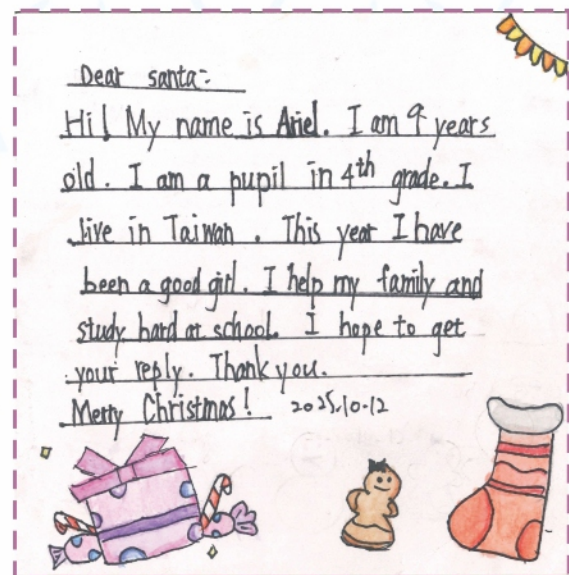 Dear santa:
Hi! My name is Ariel. I am 9 years
old. I am a pupil in 4th grade. I
live in Taiwan. This year I have
been a good girl. I help my family and
study hard at school. I hope to get
your reply. Thank you.
Merry Christmas! 2025.10.12